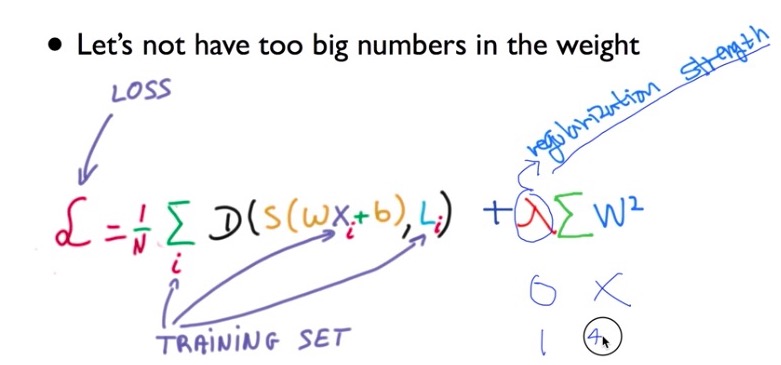 • Let's not have too big numbers in the weight
regularization strength
LOSS
ℒ = 1/N Σ_i D(S(WX_i+b), L_i) + λ Σ W²
0 X
1 4
TRAINING SET